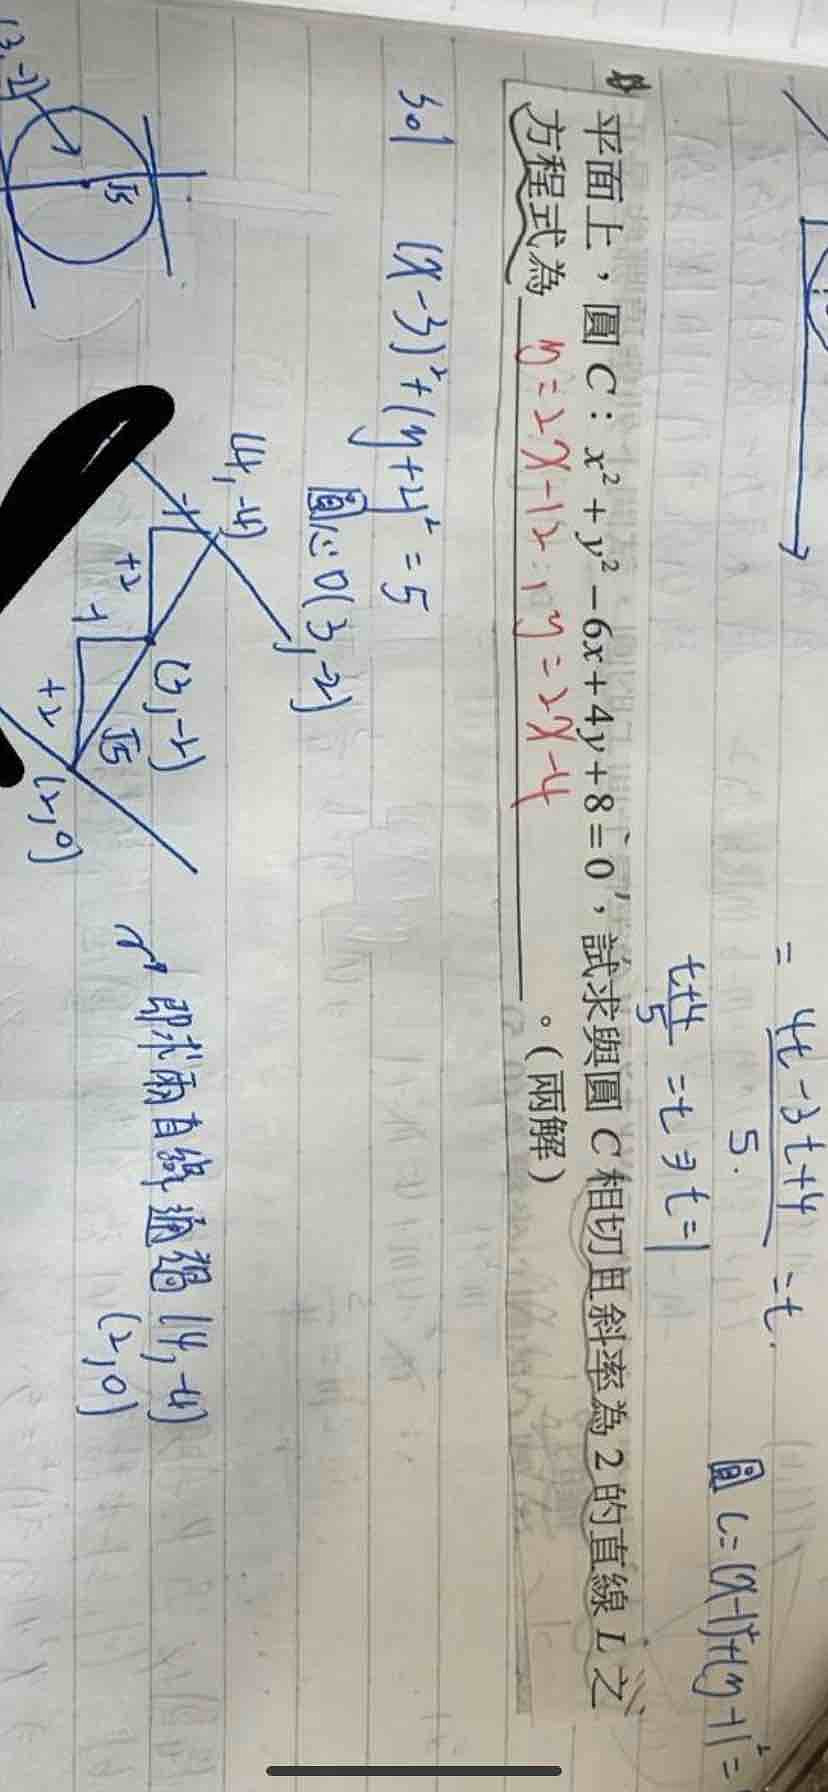 = (4t-3t+4)/5 = t
(t+4)/5 = t ⇒ t=1
圓 C=(x-1)²+(y-1)²=
平面上，圓 C：x²+y²−6x+4y+8=0，試求與圓 C 相切且斜率為 2 的直線 L 之
方程式為 y=2x-12；y=2x-4 。(兩解)
sol (x-3)²+(y+2)²=5
圓心O(3,-2)
(4,-4)
-1
+2
(3,-2)
-1
+2
√5
(2,0)
即求兩直線通過(4,-4)
(2,0)
(3,-2)
√5